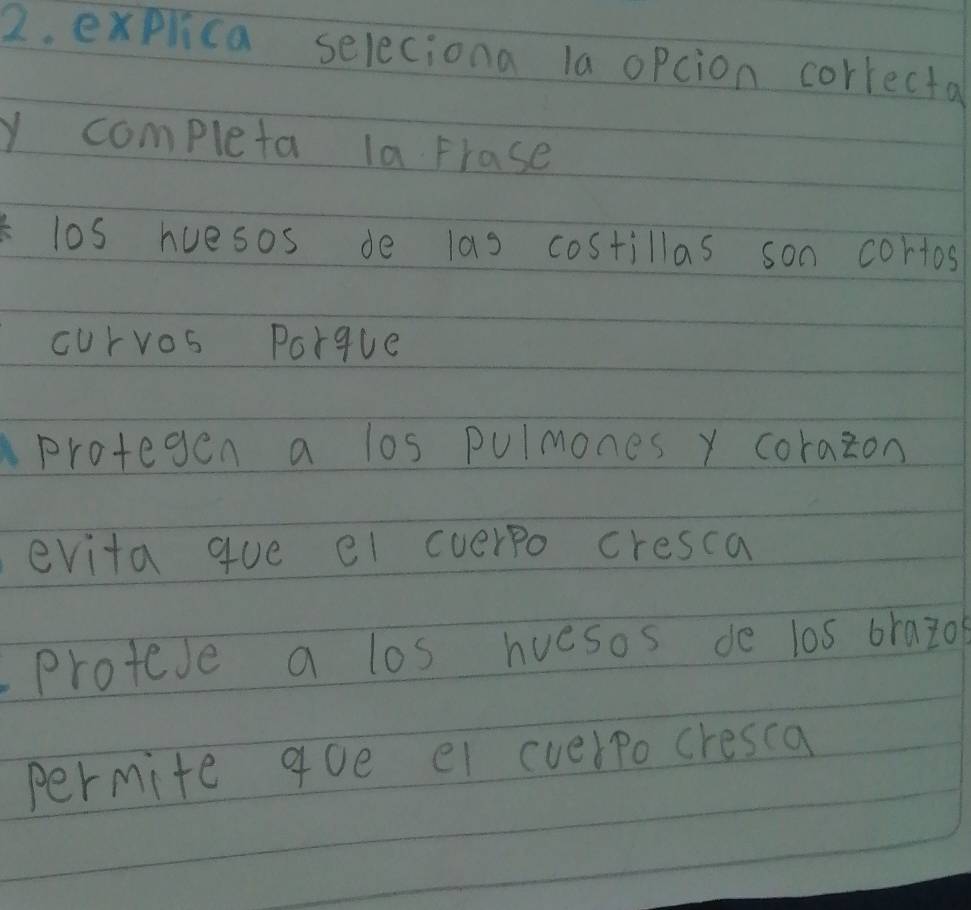 2. explica seleciona la opcion correcta
y completa la Frase
* los huesos de las costillas son cortos
curvos Porque
protegen a los pulmones y corazon
evita que el cuerpo cresca
proteje a los huesos de los brazos
permite que el cuerpo cresca